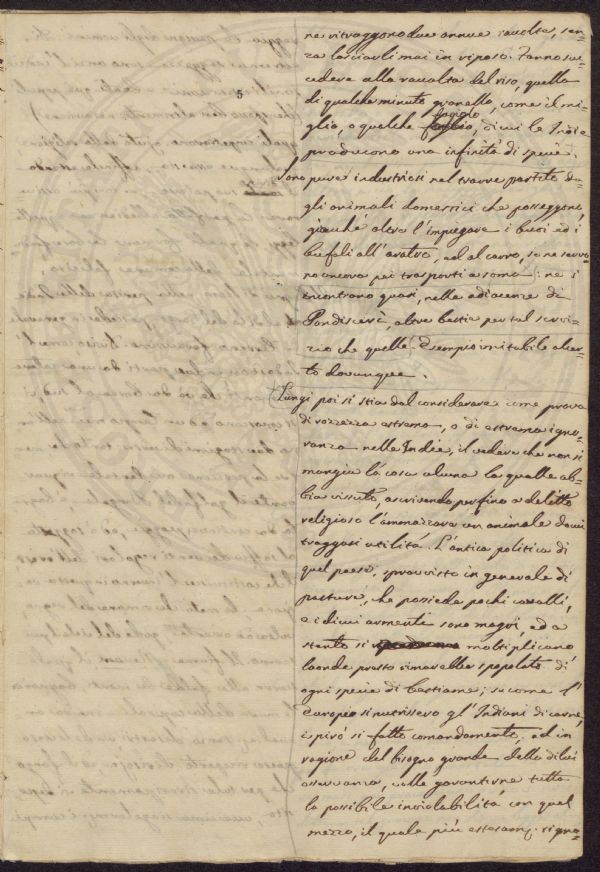 ne ritraggono due annue raccolte, sen=
za lasciarli mai in riposo. Fanno suc=
cedere alla raccolta del riso, quella
5
di qualche minuto granello, come il mi=
fagiolo
glio, o qualche di cui le Indie
producono una infinità di specie.
Sono pure industriosi nel trarre partito da=
gli animali domestici che posseggono,
giacché oltre l'impiegare i buoi ed i
bufali all'aratro, ed al carro, se ne servo=
no ancora pei trasporti a soma: ne s'
incontrano quasi, nelle adiacenze di
Pondiscerì, altre bestie per tal servi=
zio che quelle. Esempio imitabile al cer=
to dovunque.
Lungi poi si stia dal considerare come prova
di rozzezza estrema, o di estrema igno=
ranza nelle Indie, il vedere che non si
mangia là cosa alcuna la quale ab=
bia vissuto, ascrivendo perfino a delitto
religioso l'ammazzare un animale da cui
traggasi utilità. L'antica politica di
quel paese, sprovvisto in generale di
pasture, che possiede pochi cavalli,
e i di cui armenti sono magri, ed a
stento si moltiplicano
laonde presto rimarrebbe spopolato di
ogni specie di bestiame; se come l'
Europeo si nutrissero gl'Indiani di carne,
ispirò sì fatto comandamento, ed in
ragione del bisogno grande della di lui
osservanza, volle garantirne tutta
la possibile inviolabilità con quel
mezzo, il quale più estesam. signo=